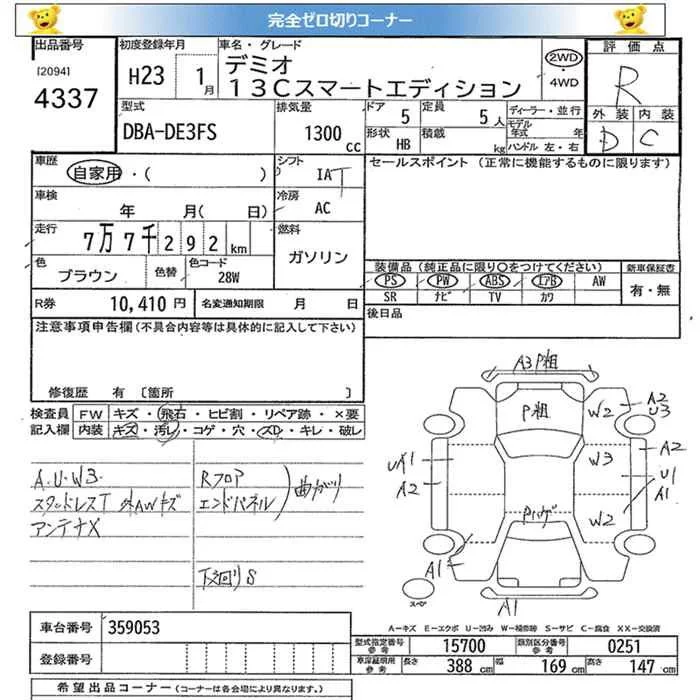 完全ゼロ切りコーナー
出品番号
[2094]
4337
初度登録年月
H23 1月
車名・グレード
デミオ
13Cスマートエディション
2WD
・
4WD
評価点
R
外装 内装
D C
型式
DBA-DE3FS
排気量
1300 cc
ドア 5
定員 5人
形状 HB
積載 kg
ディーラー・並行
モデル年式 年
ハンドル 左・右
車歴
自家用・( )
シフト
IAT
車検
年 月( 日)
冷房
AC
走行
7万7千292km
燃料
ガソリン
色
ブラウン
色替
色コード
28W
R券 10,410 円
名変通知期限 月 日
セールスポイント (正常に機能するものに限ります)
装備品(純正品に限り○をつけてください)
PS PW ABS エアB AW
SR ナビ TV カワ
新車保証書
有・無
後日品
注意事項申告欄(不具合内容等は具体的に記入して下さい)
修復歴 有 [箇所 ]
検査員記入欄
FW キズ・飛石・ヒビ割・リペア跡・×要
内装 キズ・汚レ・コゲ・穴・スレ・キレ・破レ
A.U.W3.
スタッドレスT 外AWキズ
アンテナX
Rフロア
エンドパネル
曲がり
下廻りS
A3 P粗
P粗
W2
A2
U3
A2
W3
U1
A1
W2
UA1
A2
Pハゲ
A1
A1
スペア
A-キズ E-エクボ U-凹み W-補修跡 S-サビ C-腐食 XX-交換済
車台番号 359053
登録番号
型式指定番号 参考 15700
類別区分番号 参考 0251
車庫証明用 参考 長さ 388 cm 幅 169 cm 高さ 147 cm
希望出品コーナー(コーナーは各会場により異なります。)